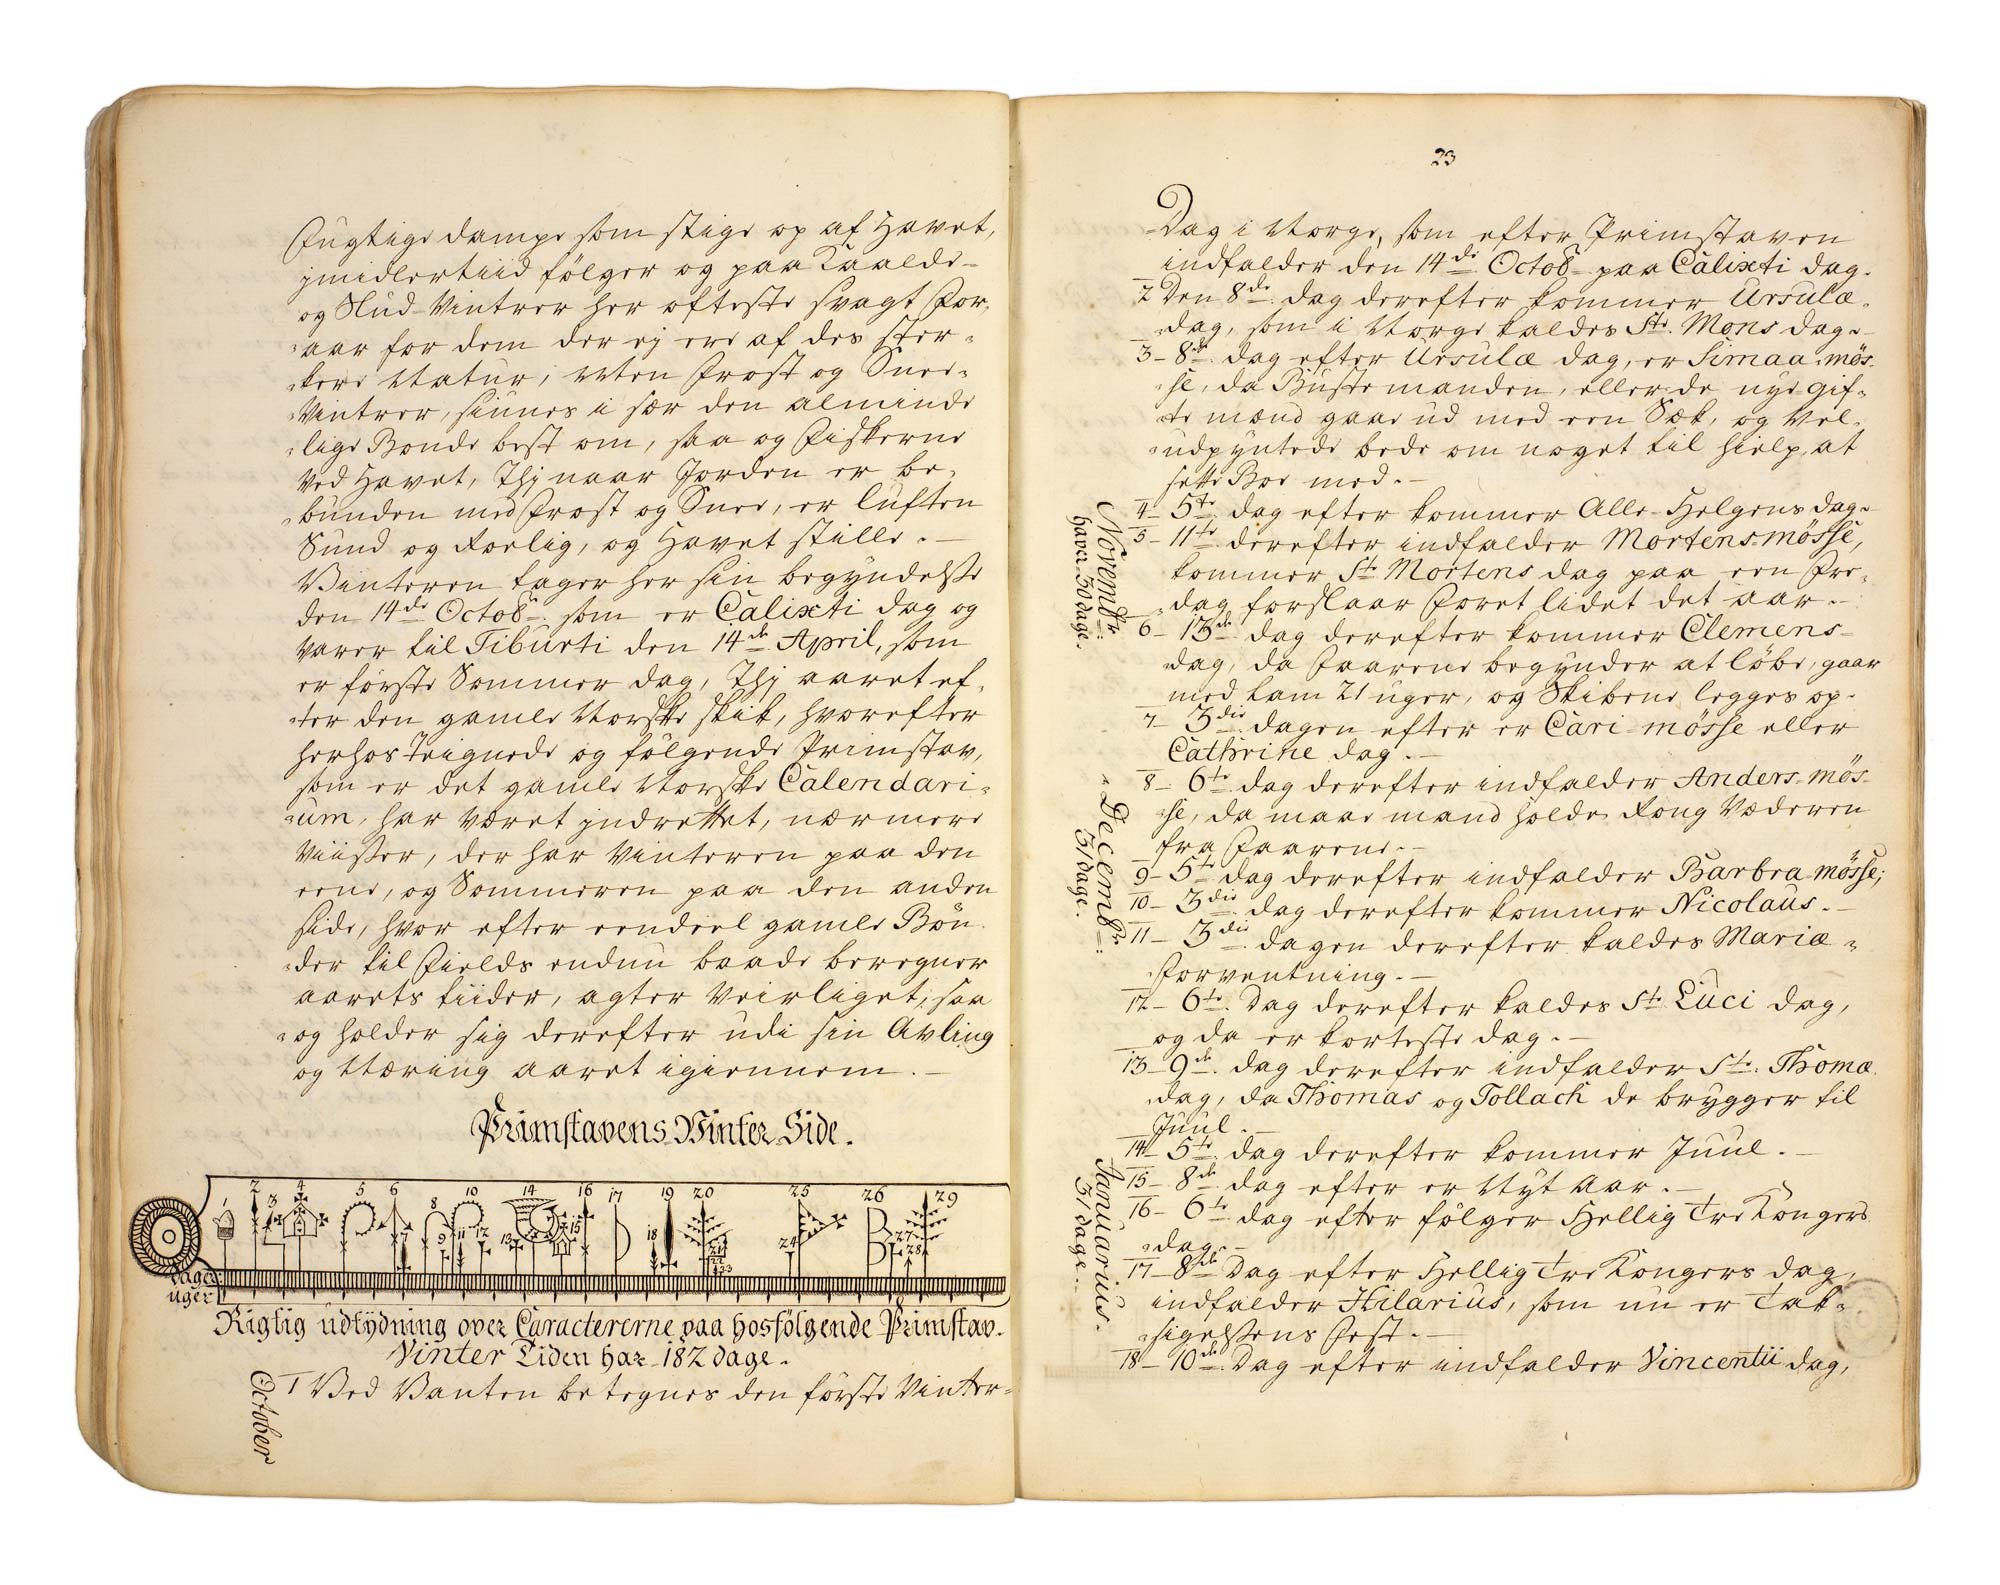 Fugtige dampe som stige op af Havet,
jmidlertiid fölger og paa Kaalde-
og Slud-Vintrer her ofteste svagt For-
aar for dem der ej ere af des ster-
kere Natur; Men Frost og Snee-
Vintrer, siunes i sær den alminde
lige Bonde best om, saa og Fiskerne
ved Havet, Thj naar Jorden er be-
bunden med Frost og Snee, er luften
Sund og Roelig, og Havet stille.-
Vinteren tager her sin begyndelse
den 14de Octobr. som er Calixti dag og
varer til Tiburti den 14de April, som
er første Sommer dag, Thj aaret ef-
ter den gamle Norske skik, hvorefter
herhos Teignede og følgende Primstav,
som er det gamle Norske Calendari-
um, har været jndrettet, nærmere
viiser, der har Vinteren paa den
eene, og Sommeren paa den anden
side, hvor efter eendeel gamle Bön
der til Fields endnu baade beregner
aarets tiider, agter Veirliget, saa
og holder sig derefter udi sin Avling
og Næring aaret igiennem.-
Primstavens Vinter Side.
1 2 3 4 5 6 7 8 9 10 11 12 13 14 15 16 17 18 19 20 21 22 23 24 25 26 27 28 29
dage
uger
Rigtig udtÿdning over Caractererne paa hosfölgende Primstav.
Vinter Tiden har 182 dage.
October
1 Ved Vanten betegnes den første Vinter-
23
Dag i Norge, som efter Primstaven
indfalder den 14de Octob- paa Calixti dag.
2 Den 8de dag derefter kommer Ursulæ-
dag, som i Norge kaldes Ste. Mons dag.-
3- 8de dag efter Ursulæ dag, er Simaa-mös-
se, da Buste manden, eller de nye gif-
te mænd gaae ud med een Sæk, og vel-
udpyntede bede om noget til hielp, at
sette Boe med.-
4- 5te dag efter kommer Alle-Helgens dag.-
November
haver 30 dage.
5- 11te derefter indfalder Mortens-mösse,
kommer St. Mortens dag paa een Fre-
dag forslaar Foret lidet det aar.-
6- 13de dag derefter kommer Clemens-
dag, da Faarene begynder at löbe, gaar
med Lam 21 uger, og Skibene legges op.
7- 3die dagen efter er Cari-mösse eller
Cathrine dag.-
8- 6te dag derefter indfalder Anders-mös-
se, da maae mand holde Rong Væderen
fra Faarene.-
Decembr.
31 dage.
9- 5te dag derefter indfalder Barbra-mösse;
10- 3die dag derefter kommer Nicolaus.-
11- 3die dagen derefter kaldes Mariæ-
Forventning.-
12- 6te Dag derefter kaldes St. Luci dag,
og da er korteste dag.-
13- 9de dag derefter indfalder Ste. Thomæ
dag, da Thomas og Tollach de brygger til
Juul.-
14- 5te dag derefter kommer Juul.-
Januarius.
31 dage.
15- 8de dag efter er Nyt Aar.-
16- 6te dag efter følger Hellig Tre Kongers
dag.-
17- 8de Dag efter Hellig Tre Kongers dag,
indfalder Hilarius, som nu er Tak-
sigelsens Fest.-
18- 10de Dag efter indfalder Vincentii dag,